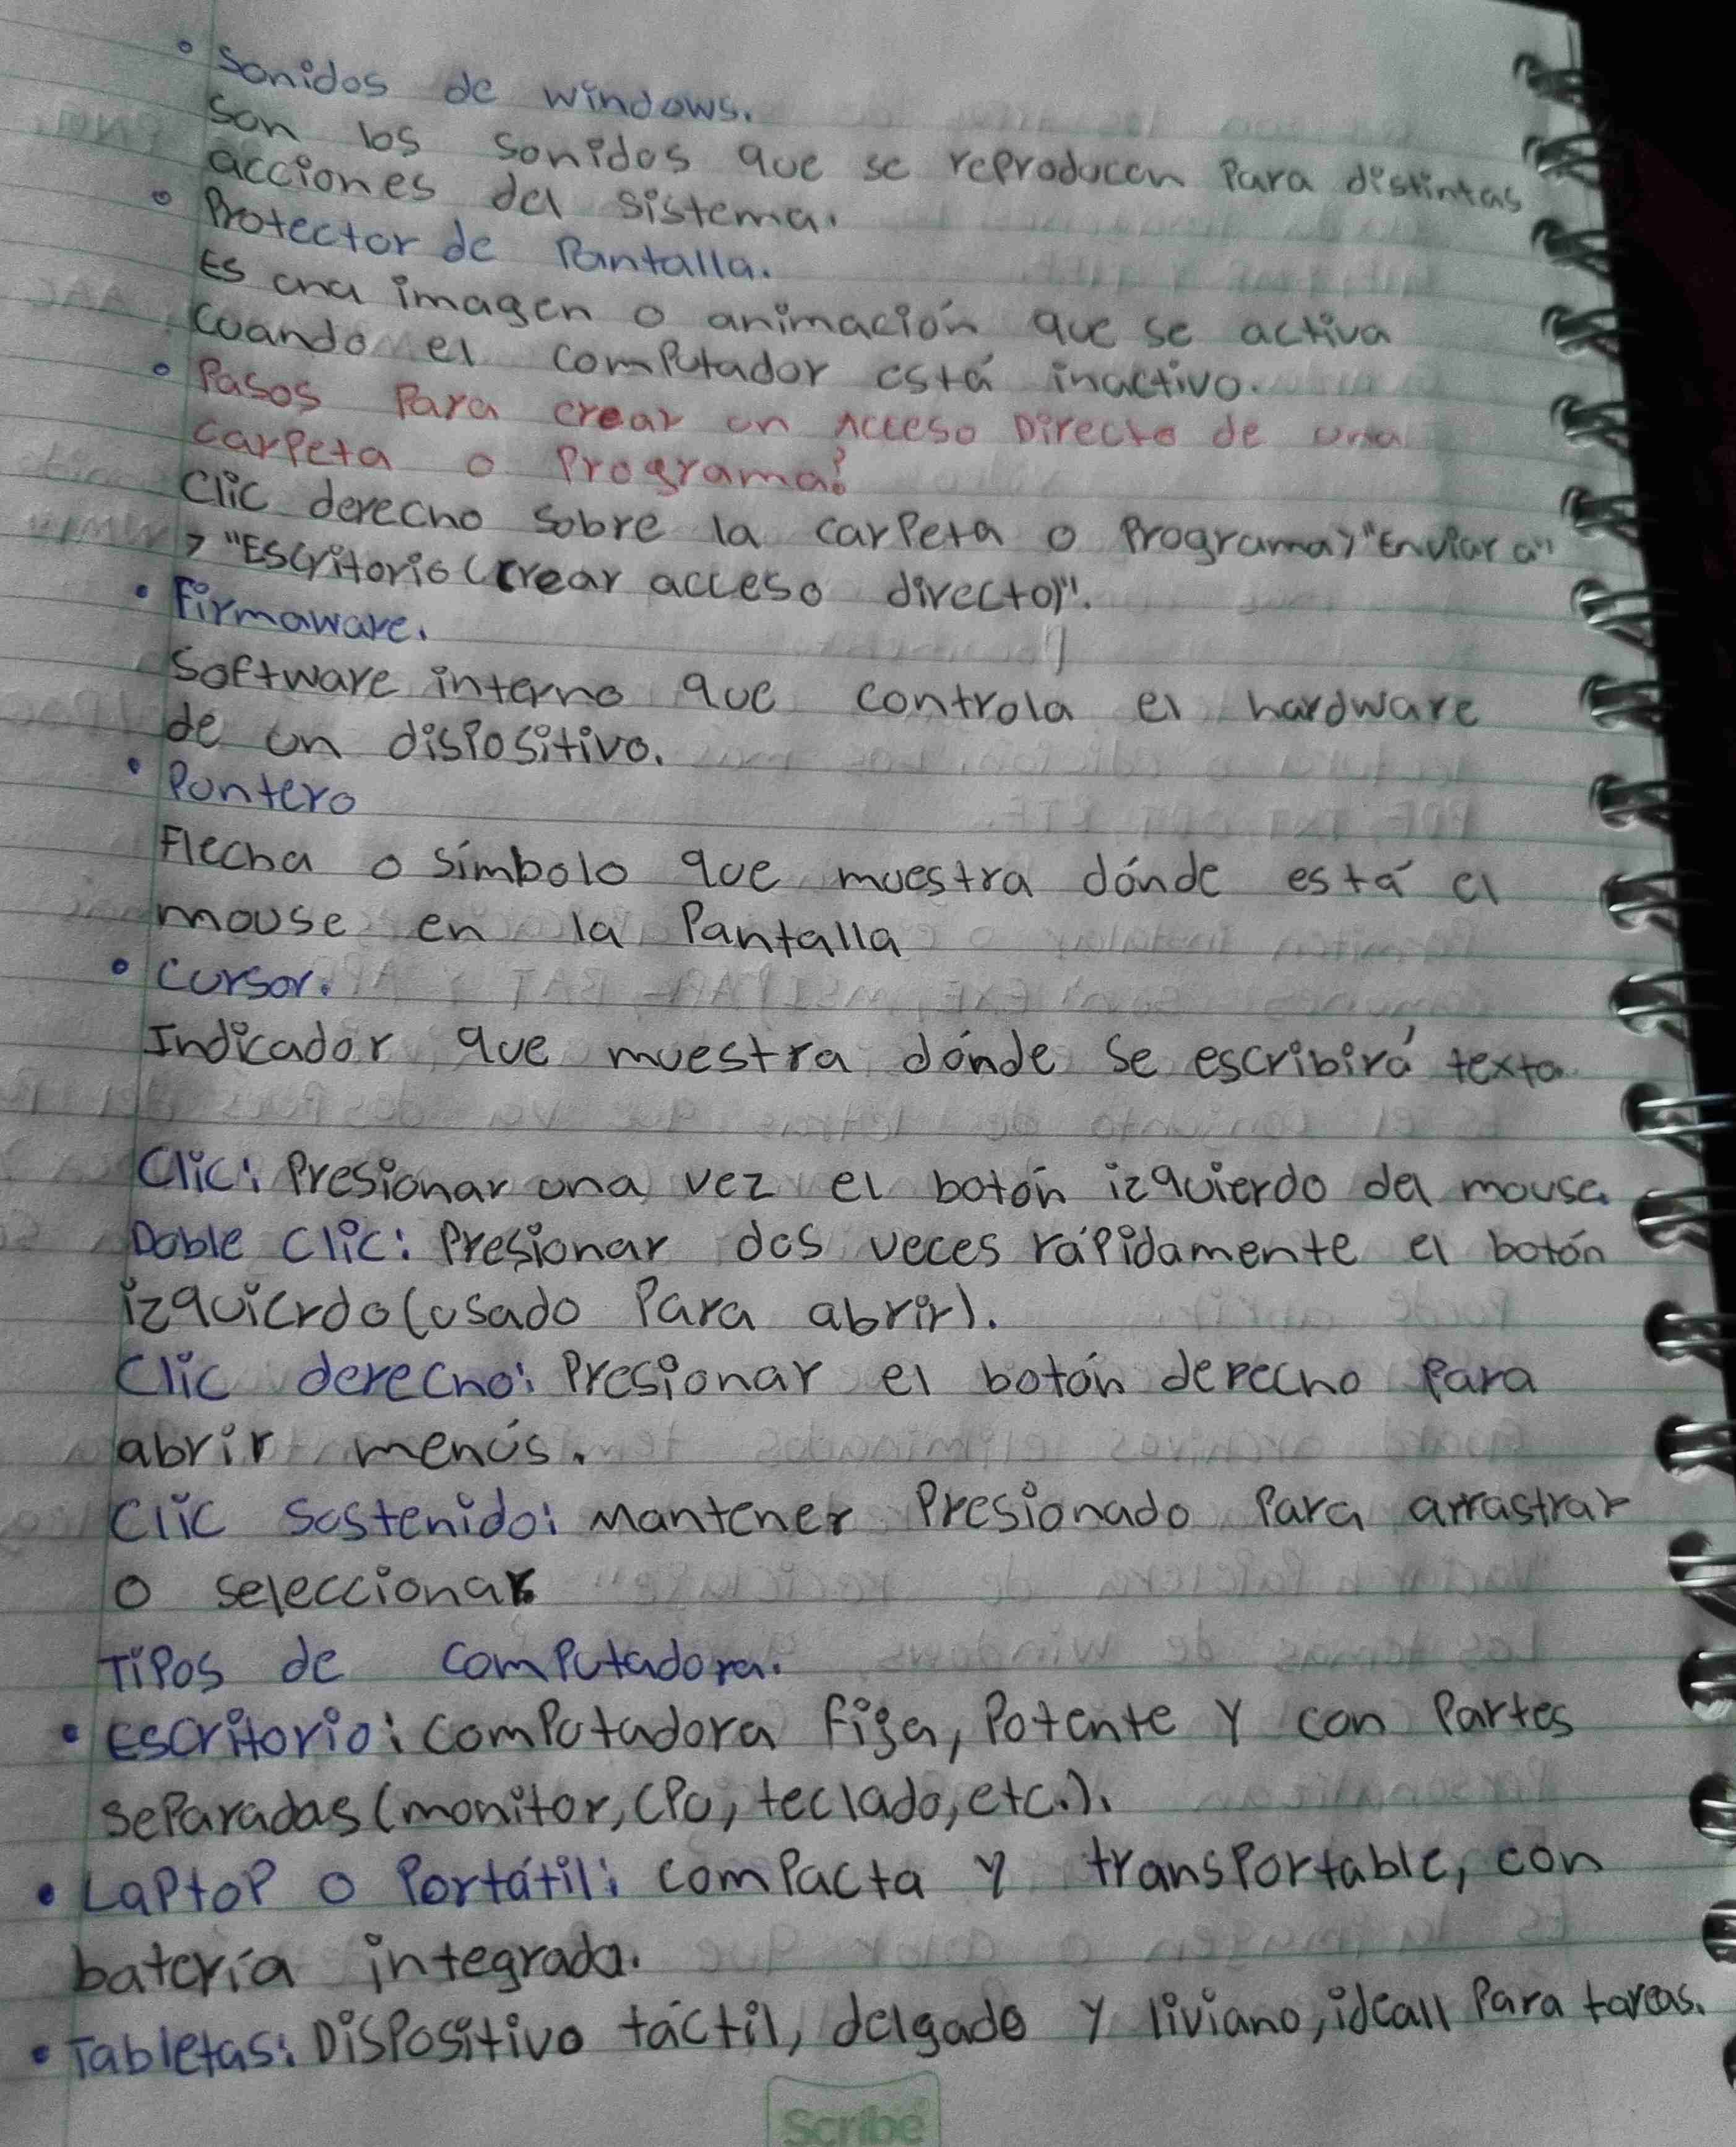 • Sonidos de windows.
Son los sonidos que se reproducen Para distintas
acciones del sistema.
• Protector de Pantalla.
Es una imagen o animación que se activa
Cuando el computador está inactivo.
• Pasos Para crear un Acceso Directo de una
carpeta o Programa?
Clic derecho sobre la carpeta o Programa>"Enviar a"
> "Escritorio (crear acceso directo)".
• Firmaware.
Software interno que controla el hardware
de un dispositivo.
• Puntero
Flecha o símbolo que muestra dónde está el
mouse en la Pantalla
• Cursor.
Indicador que muestra dónde se escribirá texto
Clic: Presionar una vez el botón izquierdo del mouse.
Doble clic: Presionar dos veces rápidamente el botón
izquierdo (usado Para abrir).
Clic derecho: Presionar el botón derecho Para
abrir menús.
Clic Sostenido: Mantener Presionado Para arrastrar
o seleccionar.
Tipos de computadora.
• Escritorio: computadora fija, Potente y con Partes
separadas (monitor, CPU, teclado, etc.).
• Laptop o Portátil: compacta y transportable, con
batería integrada.
• Tabletas: Dispositivo táctil, delgado y liviano, ideall Para tareas.
Scribe